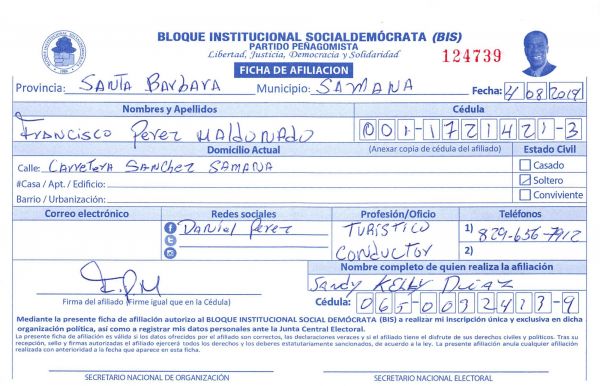 BLOQUE INSTITUCIONAL SOCIALDEMÓCRATA (BIS)
PARTIDO PEÑAGOMISTA
Libertad, Justicia, Democracia y Solidaridad
124739
FICHA DE AFILIACION
Provincia: SANTA BARBARA Municipio: SAMANA Fecha: 4/08/2019
Nombres y Apellidos Cédula
FRANCISCO PEREZ MALDONADO 001-1721421-3
Domicilio Actual (Anexar copia de cédula del afiliado) Estado Civil
Calle: CARRETERA SANCHEZ SAMANA Casado
#Casa / Apt. / Edificio: Soltero
Barrio / Urbanización: Conviviente
Correo electrónico Redes sociales Profesión/Oficio Teléfonos
DANIEL PEREZ TURISTICO 1) 829-656-7912
CONDUCTOR 2)
Nombre completo de quien realiza la afiliación
SANDY KELLY DIAZ
Firma del afiliado (Firme igual que en la Cédula) Cédula: 065-0032423-9
Mediante la presente ficha de afiliación autorizo al BLOQUE INSTITUCIONAL SOCIAL DEMÓCRATA (BIS) a realizar mi inscripción única y exclusiva en dicha
organización política, así como a registrar mis datos personales ante la Junta Central Electoral.
La presente ficha de afiliación es válida si los datos ofrecidos por el afiliado son correctos, las declaraciones veraces y si el afiliado tiene el disfrute de sus derechos civiles y políticos. Tras su
recepción, sello y firmas autorizadas el afiliado ejercerá todos los derechos y los deberes estatutariamente sancionados, de acuerdo a la ley. La presente afiliación anula cualquier afiliación
realizada con anterioridad a la fecha que aparece en esta ficha.
SECRETARIO NACIONAL DE ORGANIZACIÓN SECRETARIO NACIONAL ELECTORAL